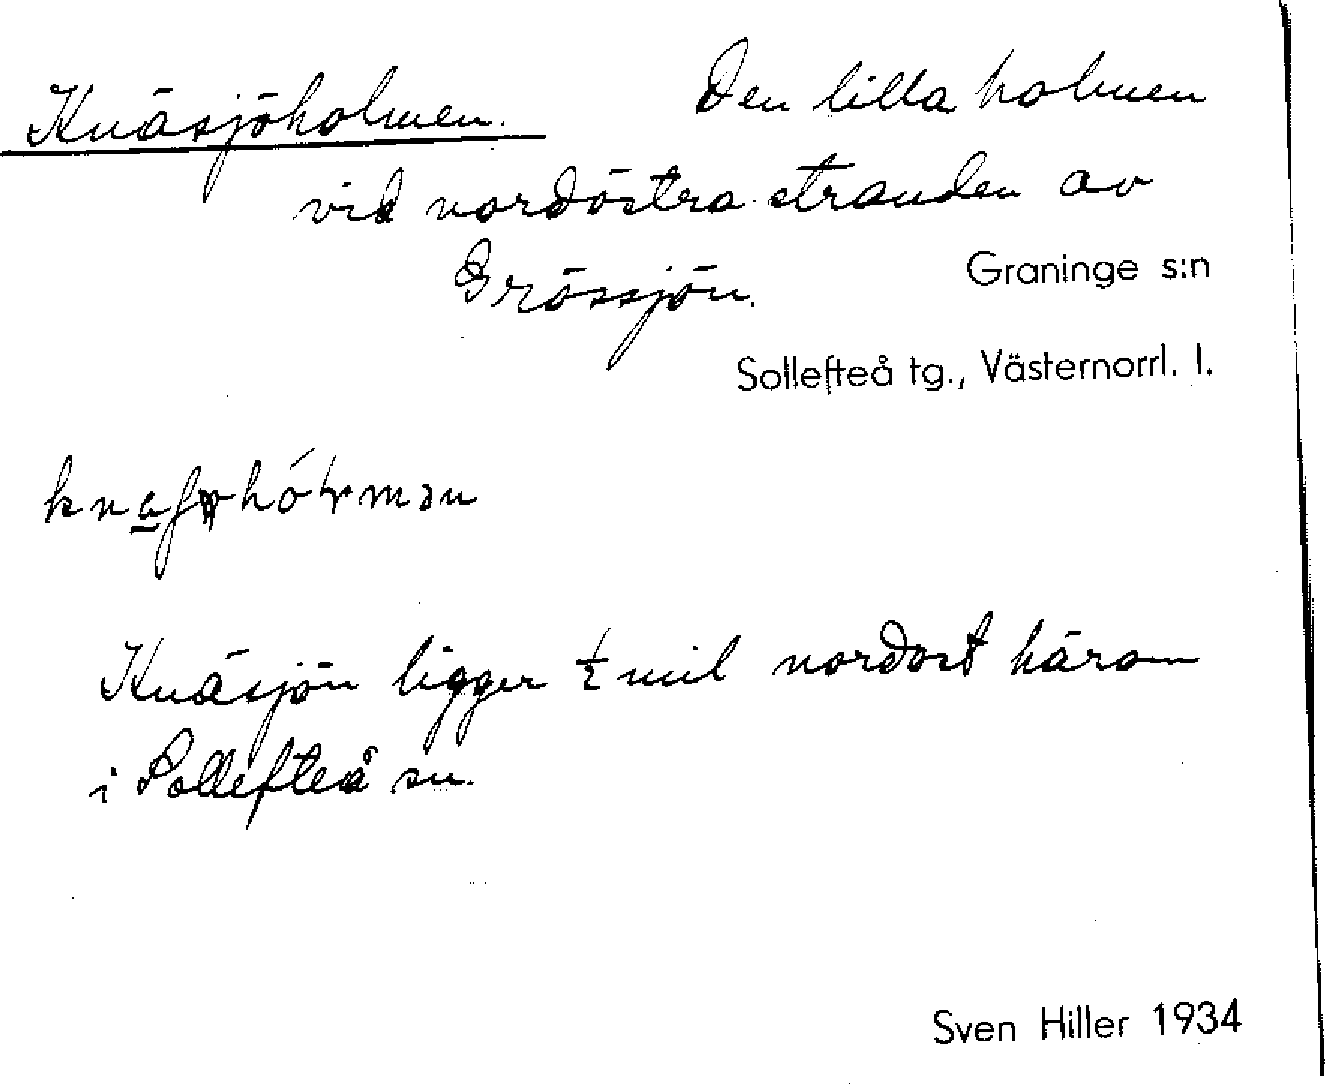 Knäsjöholmen. Den lilla holmen
vid nordöstra stranden av
Grössjön.
Graninge s:n
Sollefteå tg., Västernorrl. l.
Knäsjön ligger ½ mil nordost härom
i Sollefteå sn.
Sven Hiller 1934